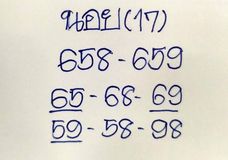 ฮอย(17)
658-659
65-68-69
59-58-98